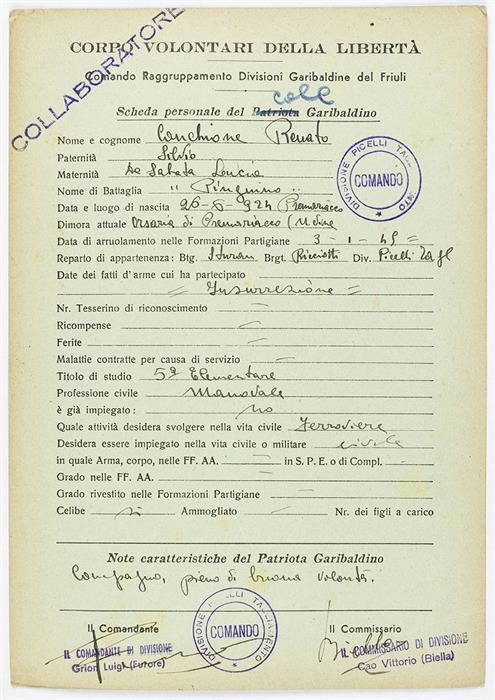 COLLABORATORE
CORPO VOLONTARI DELLA LIBERTÀ
Comando Raggruppamento Divisioni Garibaldine del Friuli
coll
Scheda personale del Patriota Garibaldino
Nome e cognome Conchione Renato
Paternità Silvio
Maternità De Sabata Lucia
Nome di Battaglia " Pinguino "
Data e luogo di nascita 26-8-924 Premariacco
Dimora attuale Orsaria di Premariacco (Udine
Data di arruolamento nelle Formazioni Partigiane 3-1-45 =
Reparto di appartenenza: Btg. Brgt. Ricciotti Div. Picelli Tagl
Date dei fatti d'arme cui ha partecipato
= Insurrezione =
Nr. Tesserino di riconoscimento —
Ricompense —
Ferite —
Malattie contratte per causa di servizio —
Titolo di studio 5ª Elementare
Professione civile Manovale
è già impiegato: no
Quale attività desidera svolgere nella vita civile Ferroviere
Desidera essere impiegato nella vita civile o militare civile
in quale Arma, corpo, nelle FF. AA. — in S. P. E. o di Compl. —
Grado nelle FF. AA. —
Grado rivestito nelle Formazioni Partigiane —
Celibe si Ammogliato — Nr. dei figli a carico
DIVISIONE PICELLI TAGLIAMENTO
COMANDO
Note caratteristiche del Patriota Garibaldino
Compagno, pieno di buona volontà.
Il Comandante
IL COMANDANTE DI DIVISIONE
Grion Luigi (Furore)
DIVISIONE PICELLI TAGLIAMENTO
COMANDO
Il Commissario
Biella
IL COMMISSARIO DI DIVISIONE
Cao Vittorio (Biella)